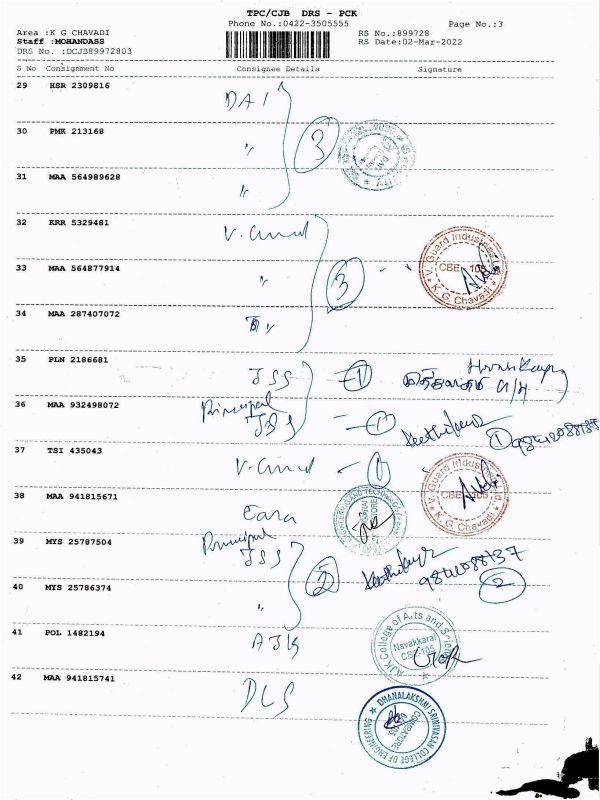 TPC/CJB DRS - PCK
Phone No.:0422-3505555
Page No.:3
Area :K G CHAVADI
RS No.:899728
Staff :MOHANDASS
RS Date:02-Mar-2022
DRS No. :DCJB89972803
S No Consignment No Consignee Details Signature
29 HSR 2309816 DAI
30 PMK 213168 " 3
31 MAA 564989628 "
32 KRR 5329481 V. Guard
33 MAA 564877914 " 3
V. Guard Industries Ltd
CBE - 105
K. G. Chavadi
34 MAA 287407072 "
35 PLN 2186681 JSS - 1
36 MAA 932498072 Principal JSS - 1 1
37 TSI 435043 V. Guard - 1
V. Guard Industries Ltd
CBE - 105
K. G. Chavadi
38 MAA 941815671
39 MYS 25787504 Principal JSS 2 9842088137
40 MYS 25786374 " 2
41 POL 1482194 AJK
AJK College of Arts and Science
Navakkarai
CBE-105
42 MAA 941815741 DLS
DHANALAKSHMI SRINIVASAN COLLEGE OF ENGINEERING
COIMBATORE